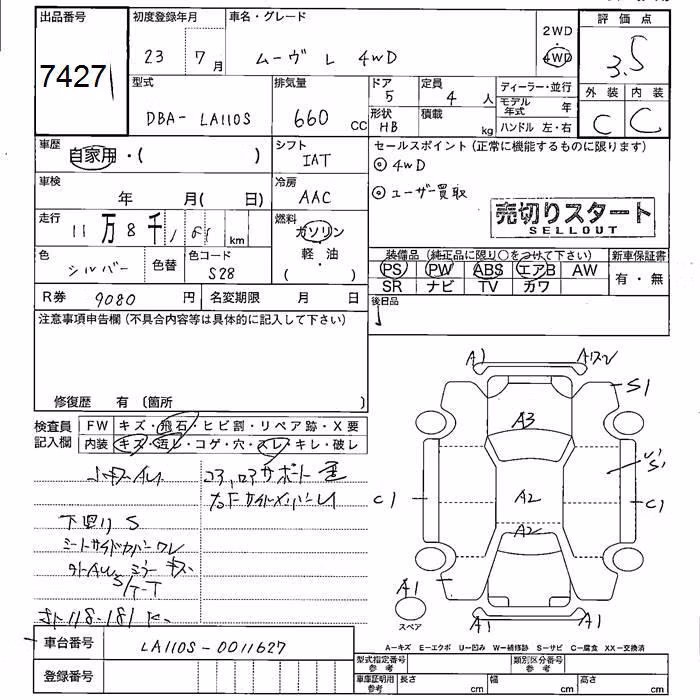 出品番号
7427
初度登録年月
23 7月
車名・グレード
ムーヴ L 4WD
2WD
4WD
評価点
3.5
外装 内装
C C
型式
DBA- LA110S
排気量
660 CC
ドア
5
形状
HB
定員
4 人
積載
kg
ディーラー・並行
モデル年式 年
ハンドル 左・右
車歴
自家用・( )
シフト
IAT
セールスポイント (正常に機能するものに限ります)
◎ 4WD
◎ ユーザー買取
売切りスタート
SELLOUT
車検
年 月( 日)
冷房
AAC
走行
11万8千,181 km
燃料
ガソリン
軽・油
( )
色
シルバー
色替
色コード
S28
装備品 (純正品に限り○をつけて下さい)
PS PW ABS エアB AW
SR ナビ TV カワ
新車保証書
有・無
R券 9080 円
名変期限 月 日
後日品
注意事項申告欄 (不具合内容等は具体的に記入して下さい)
修復歴 有 (箇所 )
検査員記入欄
FW キズ・飛石・ヒビ割・リペア跡・X要
内装 キズ・汚レ・コゲ・穴・スレ・キレ・破レ
コア,ロアサポート
下回り S
A1 A1
S1
A3
C1
A2
S1
C1
A2
A1
スペア
A1 A1
車台番号 LA110S-0011627
登録番号
A−キズ E−エクボ U−凹み W−補修跡 S−サビ C−腐食 XX−交換済
型式指定番号 参考
類別区分番号 参考
車庫証明用 参考
長さ cm
幅 cm
高さ cm